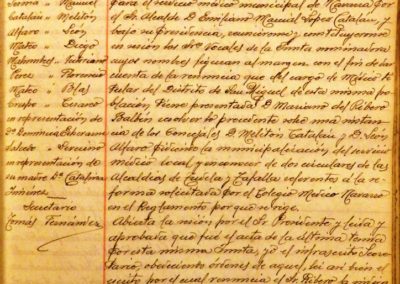 Manuel
Catalán " Melitón
Alfaro " León
Mateo " Diego
Pérez " Florencio
Mateo " Blas
Crespo " Cesareo
en representación de
Dª Dominica Echevarría
en representación de
su madre Dª Catalina
Jiménez
Secretario
Tomás Fernández
para el servicio médico municipal de Navarra por
el Sr. Alcalde D. Emiliano Manuel López Catalán, y
bajo su Presidencia, reuniéronse y constituyeron
en sesión los Sres. Vocales de la Junta nominadora
cuyos nombres figuran al margen con el fin de dar
cuenta de la renuncia que del cargo de Médico ti-
tular del Distrito de San Miguel de esta misma po-
blación, tiene presentada D. Mariano del Ribero
Baltán resolver lo procedente sobre una instan-
cia de los Concejales D. Melitón Catalán y D. León
Alfaro pidiendo la municipalización del servicio
médico local, y conocer de dos circulares de las
Alcaldías de Tudela y Tafalla referentes á la re-
forma solicitada por el Colegio Médico Navarro
en el Reglamento por que se rige.
Abierta la sesión por el Sr. Presidente y leída y
aprobada que fué el acta de la última tenida
por esta misma Junta, yo el infrascrito Secre-
tario, obedeciendo órdenes de aquel, leí
escrito por el cual renuncia el Sr. Ribero la